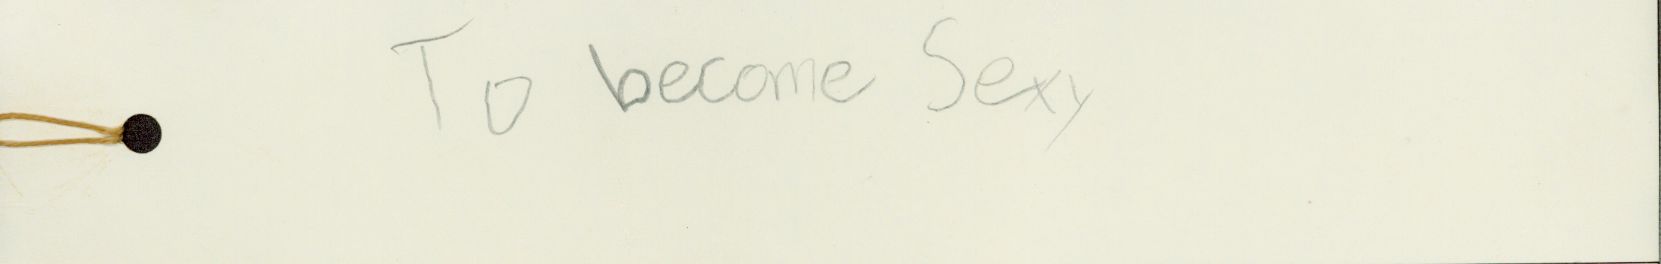 To become Sexy